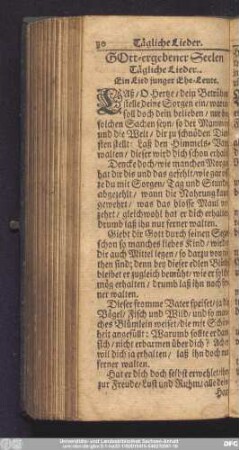 90 Tägliche Lieder.
GOtt-ergebener Seelen
Tägliche Lieder.
Ein Lied junger Ehe-Leute.
LAß / O Hertze / dein Betrübn
stelle deine Sorgen ein / waru
soll doch dein belieben / nur in
solchen Sachen seyn / so der Mammon
und die Welt / dir zu schnöden Din
sten stellt: Laß den Himmels-Va
walten / dieser wird dich schon erhalt
Dencke doch / wie manchen Morge
hat dir diß und das gefehlt / wie gar of
du mit Sorgen / Tag und Stunde
abgezehlt / wann die Nahrung
gewehrt / was das blosse Maul ve
zehrt / gleichwohl hat er dich erhalte
drumb laß ihn nur ferner walten.
Giebt dir Gott durch seinen Seg
schon so manches liebes Kind / wird
dir auch Mittel legen / so darzu von
then sind; denn bey dieser edlen
bleibet er zugleich bemüht / wie er selb
mög erhalten / drumb laß ihn noch
ner walten.
Dieser fromme Vater speiset / ja
Vögel / Fisch und Wild / und so man
ches Blümlein weiset / die mit Schön
heit angefüllt: Warumb solte er dan
sich / nicht erbarmen über dich? Ach
will dich ja erhalten / laß ihn doch nu
ferner walten.
Hat er dich doch selbst erwehlet / ihm
zur Freude / Lust und Ruhm / alle dein
Har